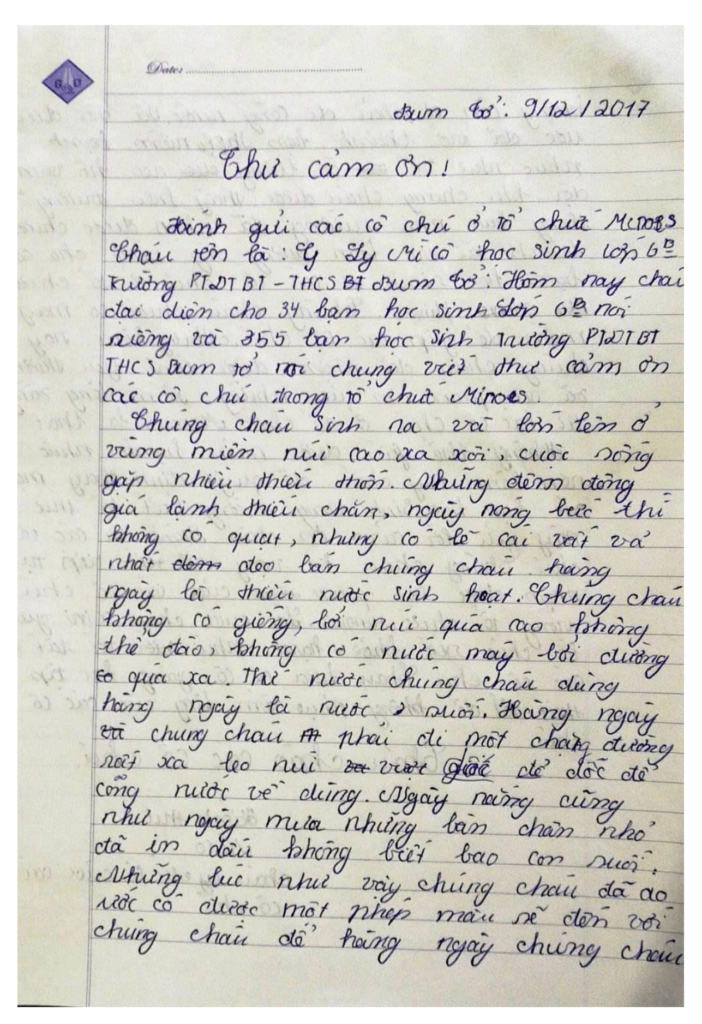 Date:
Bum tở: 9/12/2017
Thư cảm ơn!
Kính gửi các cô chú ở tổ chức Minoes
Cháu tên là: Lý Mì Cô học sinh lớp 6B
Trường PTDTBT - THCS BT Bum tở: Hôm nay cháu
đại diện cho 34 bạn học sinh lớp 6B nói
riêng và 355 bạn học sinh trường PTDTBT
THCS Bum tở nói chung viết thư cảm ơn
các cô chú trong tổ chức Minoes
Chúng cháu sinh ra và lớn lên ở
vùng miền núi cao xa xôi, cuộc sống
gặp nhiều thiếu thốn. Những đêm đông
giá lạnh thiếu chăn, ngày nóng bức thì
không có quạt, nhưng có lẽ cái vất vả
nhất đeo bám chúng cháu hàng
ngày là thiếu nước sinh hoạt. Chúng cháu
không có giếng, bởi núi quá cao không
thể đào, không có nước máy bởi đường
quá xa. Thứ nước chúng cháu dùng
hàng ngày là nước suối. Hàng ngày
chúng cháu phải đi một chặng đường
rất xa leo núi để dốc để
cõng nước về dùng. Ngày nắng cũng
như ngày mưa những bàn chân nhỏ
đã in dấu không biết bao con suối.
Những lúc như vậy chúng cháu đã ao
ước có được một phép màu sẽ đến với
chúng cháu để hàng ngày chúng cháu